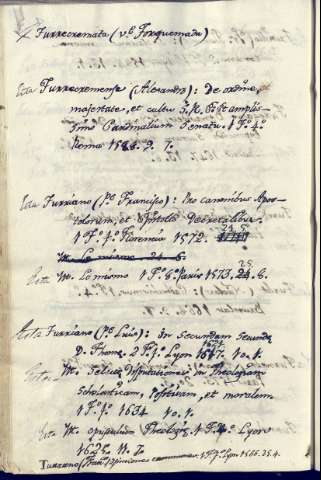 Turrecremata (v.e Torquemada)
Esta Turrecremense (Alexandro): De ordine,
majestate, et cultu S. R. E. et amplis-
simo Cardinalium Senatu. 1 T. 4.o
Roma 1588. 2. 7.
Esta Turriano (P.e Francisco): Pro canonibus Apos-
tolorum, et Epistolis Decretalibus.
1 T.o f.o Florencia 1572.
Esta Yt. Lo mismo 1 T.o 8.o Paris 1573. 6.
Esta Turriano (P.e Luis): In Secundam Secundæ
D. Thomæ. 2 T. f. Lyon
Yt. Selectæ Disputationes in Theologiam
scholasticam, positivam, et moralem
1 T.o f.o 1634
Esta Yt. opuscula Theologica. 1 T. 4.o Lyon
Turriano Opiniones 1 T. f.o Lyon